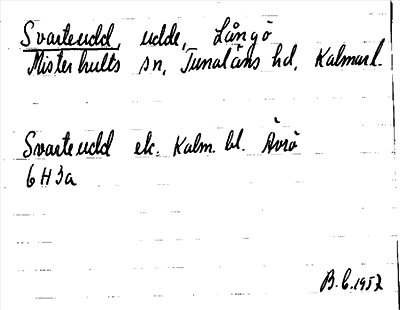 Svarteudd, udde, Långö
Misterhults sn, Tunaläns hd, Kalmarl.
Svarteudd ek. Kalm. bl. Ävrö
6H3a
B.C. 1952